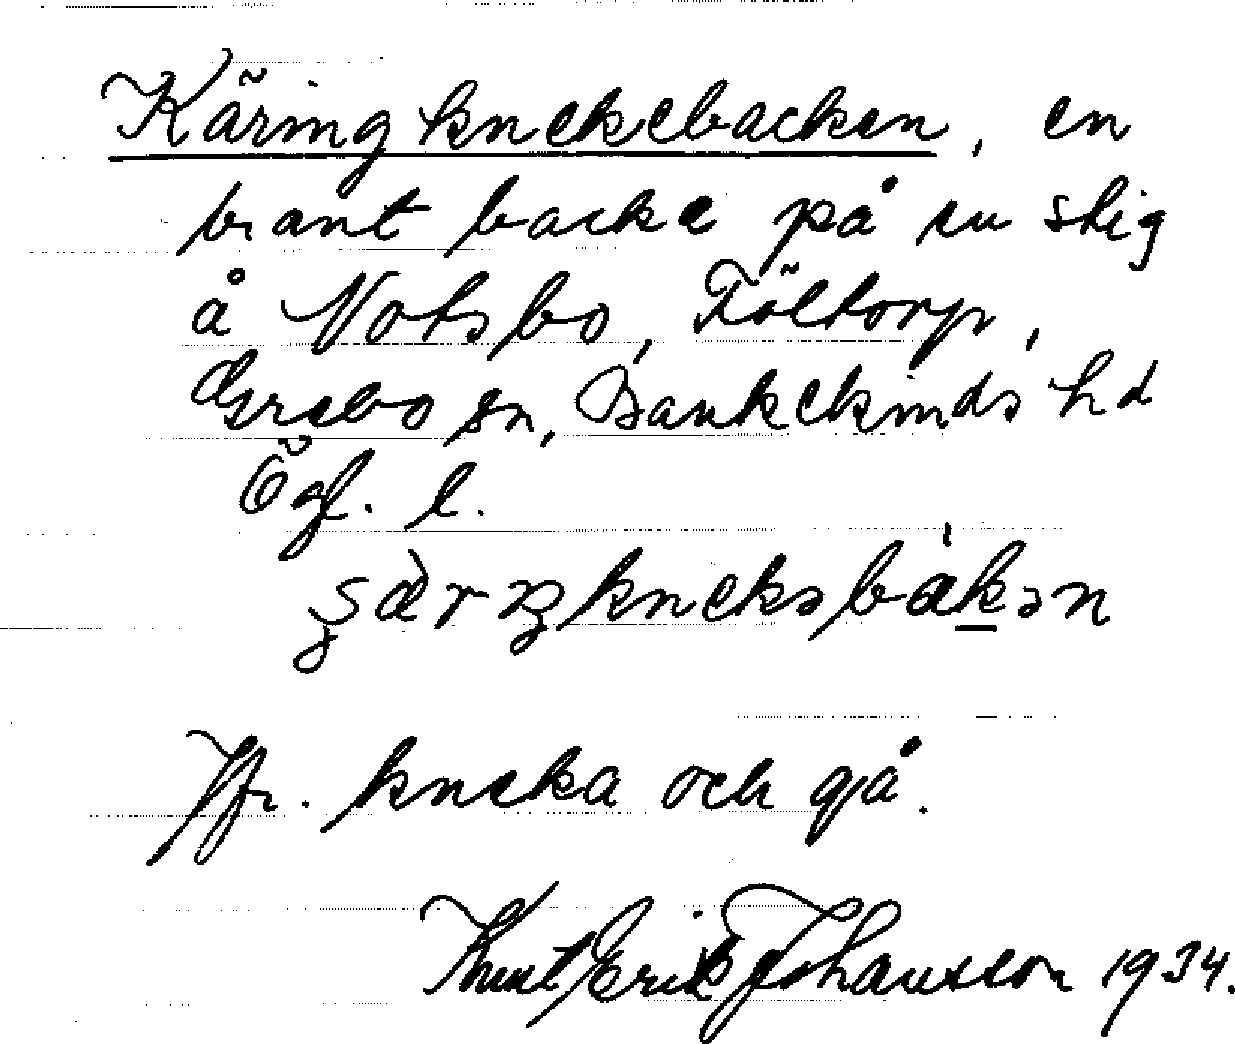 Käringknekebacken, en
brant backe på en stig
å Notsbo, Föltorp,
Grebo sn, Bankekinds hd
Ögl. l.
Jfr. kneka och gå.
Knut Erik Johansson 1934.